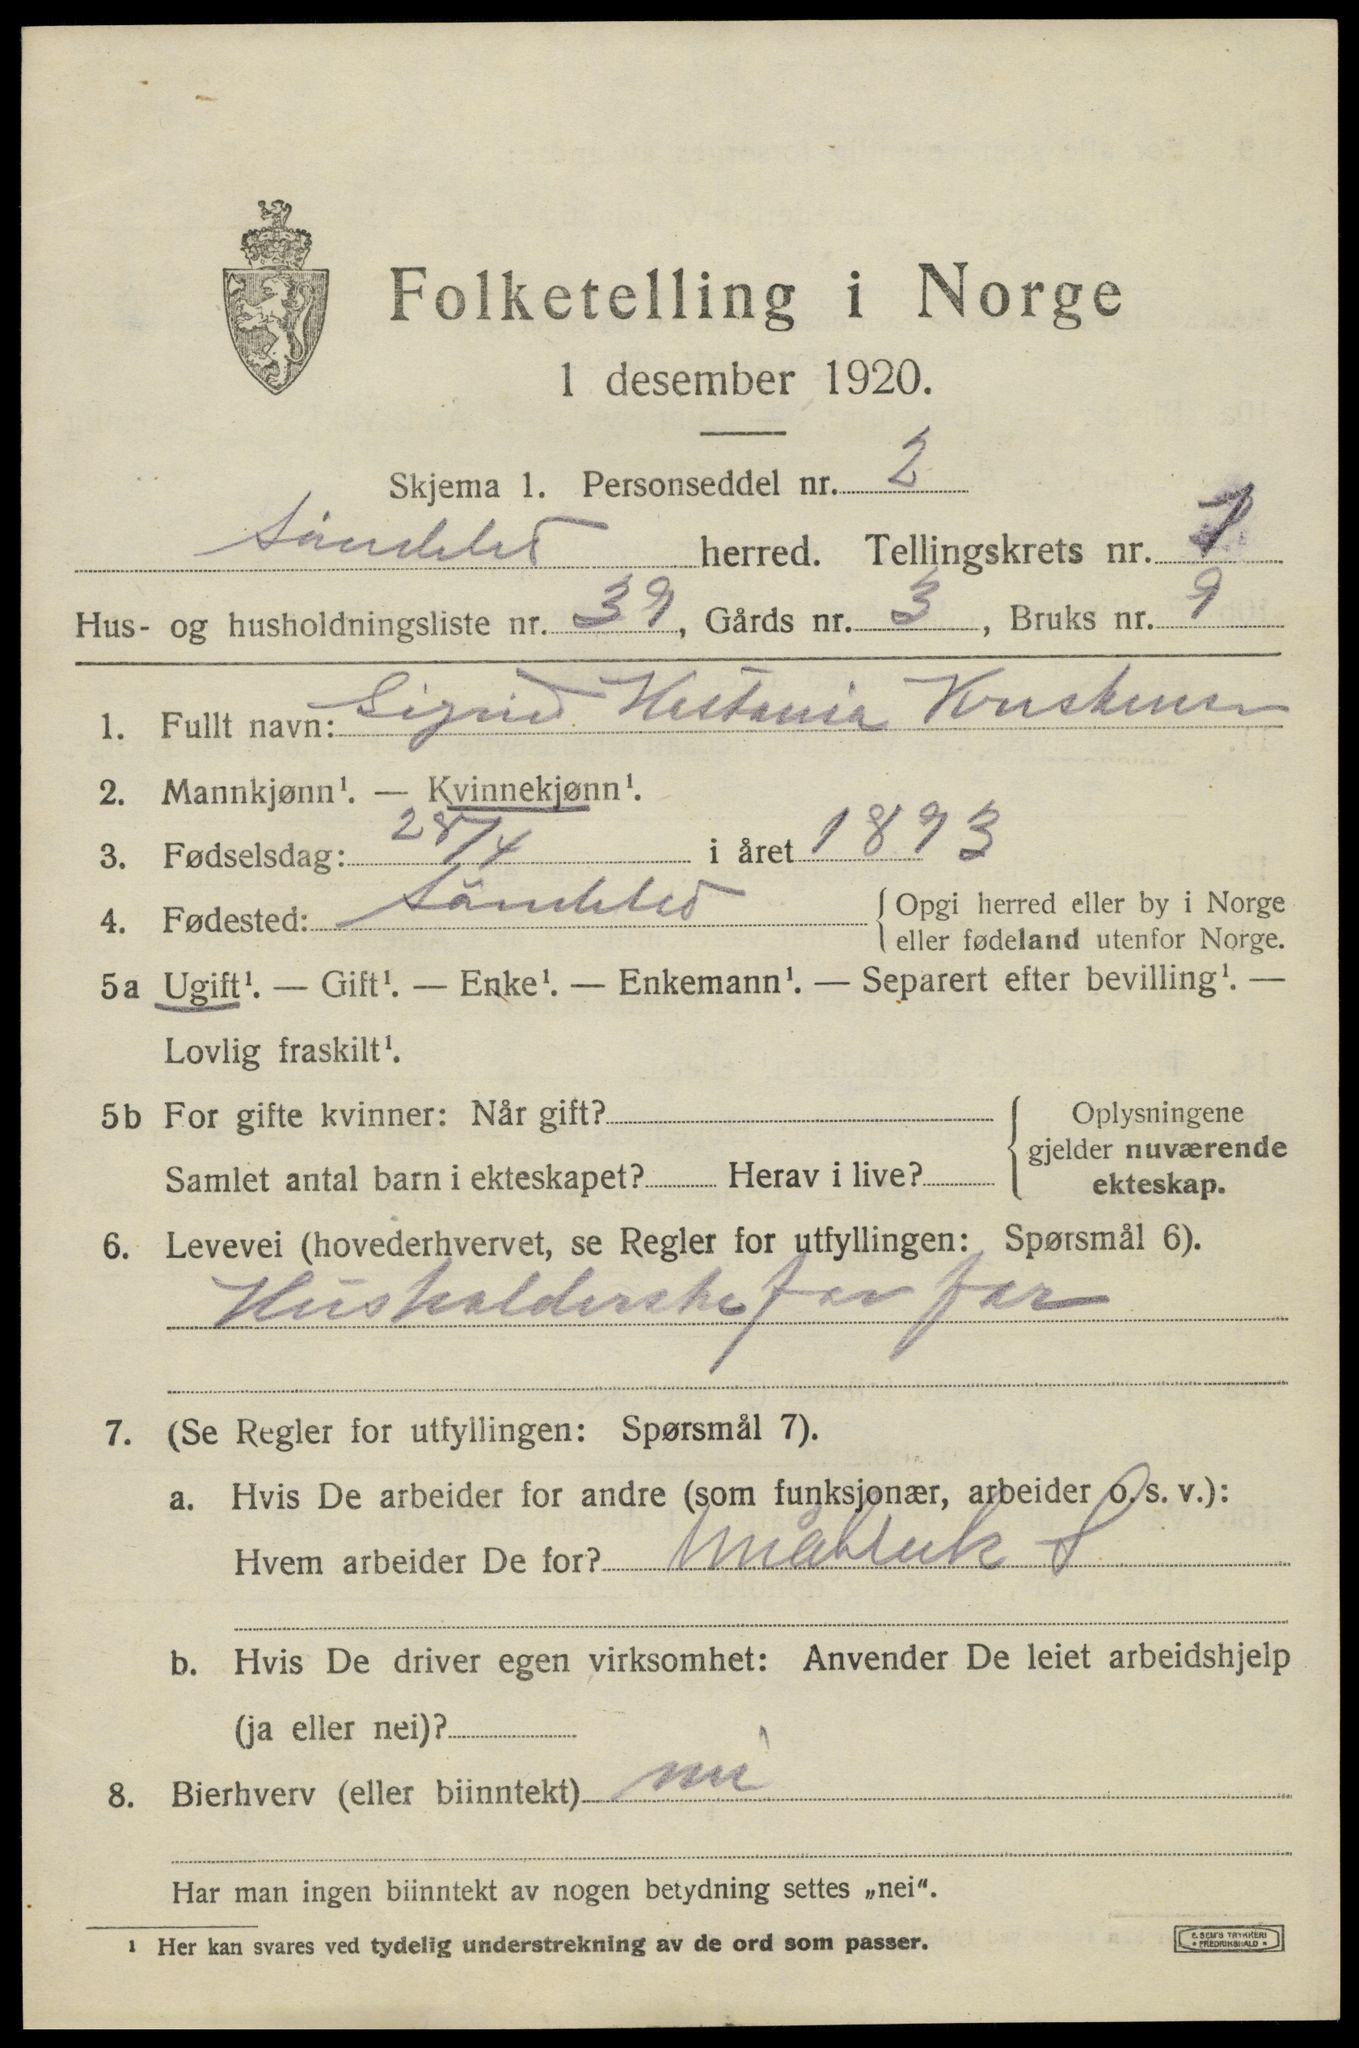 Folketelling i Norge
1 desember 1920.
Skjema 1. Personseddel nr. 2
Søndeled herred. Tellingskrets nr. 7
Hus- og husholdningsliste nr. 39, Gårds nr. 3, Bruks nr. 9
1. Fullt navn: Sigrid Kristensen
2. Mannkjønn¹. — Kvinnekjønn¹.
3. Fødselsdag: 28/4 i året 1893
4. Fødested: Søndeled {Opgi herred eller by i Norge
eller fødeland utenfor Norge.
5a Ugift¹. — Gift¹. — Enke¹. — Enkemann¹. — Separert efter bevilling¹. —
Lovlig fraskilt¹.
5b For gifte kvinner: Når gift? {Oplysningene
gjelder nuværende
Samlet antal barn i ekteskapet? Herav i live? ekteskap.
6. Levevei (hovederhvervet, se Regler for utfyllingen: Spørsmål 6).
Husholderske for far
7. (Se Regler for utfyllingen: Spørsmål 7).
a. Hvis De arbeider for andre (som funksjonær, arbeider o. s. v.):
Hvem arbeider De for?
b. Hvis De driver egen virksomhet: Anvender De leiet arbeidshjelp
(ja eller nei)?
8. Bierhverv (eller biinntekt) nei
Har man ingen biinntekt av nogen betydning settes „nei".
1 Her kan svares ved tydelig understrekning av de ord som passer.
E. SEM'S TRYKKERI
FREDRIKSHALD